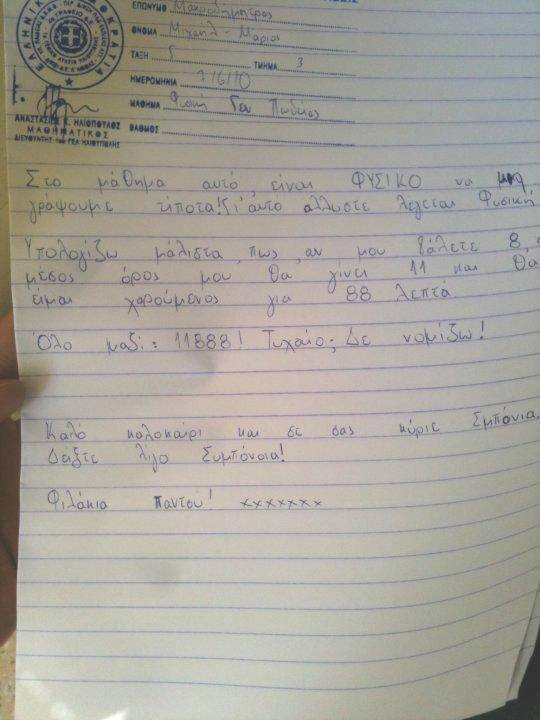 ΕΠΩΝΥΜΟ Μακροδημήτρος
ΟΝΟΜΑ Μιχαήλ - Μάριος
ΤΑΞΗ ΤΜΗΜΑ 3
ΗΜΕΡΟΜΗΝΙΑ 7/6/10
ΜΑΘΗΜΑ Φυσική Γεν Παιδείας
ΒΑΘΜΟΣ
ΕΛΛΗΝΙΚΗ ΔΗΜΟΚΡΑΤΙΑ
ΑΝΑΣΤΑΣΙΟΣ Κ. ΗΛΙΟΠΟΥΛΟΣ
ΜΑΘΗΜΑΤΙΚΟΣ
ΔΙΕΥΘΥΝΤΗΣ ΓΕΛ ΗΛΙΟΥΠΟΛΗΣ
Στο μάθημα αυτό, είναι ΦΥΣΙΚΟ να μην
γράψουμε τίποτα! Γι'αυτό αλλωστε λέγεται Φυσική
Υπολογίζω μάλιστα, πως, αν μου βάλετε 8,
μέσος όρος μου θα γίνει 11 και θα
είμαι χαρούμενος για 88 λεπτά
Όλο μαζί: 11888! Τυχαίο; Δε νομίζω!
Καλό καλοκαίρι και σε σας κύριε Σμπόνια.
Δείξτε λίγο Συμπόνοια!
Φιλάκια παντού! xxxxxxx